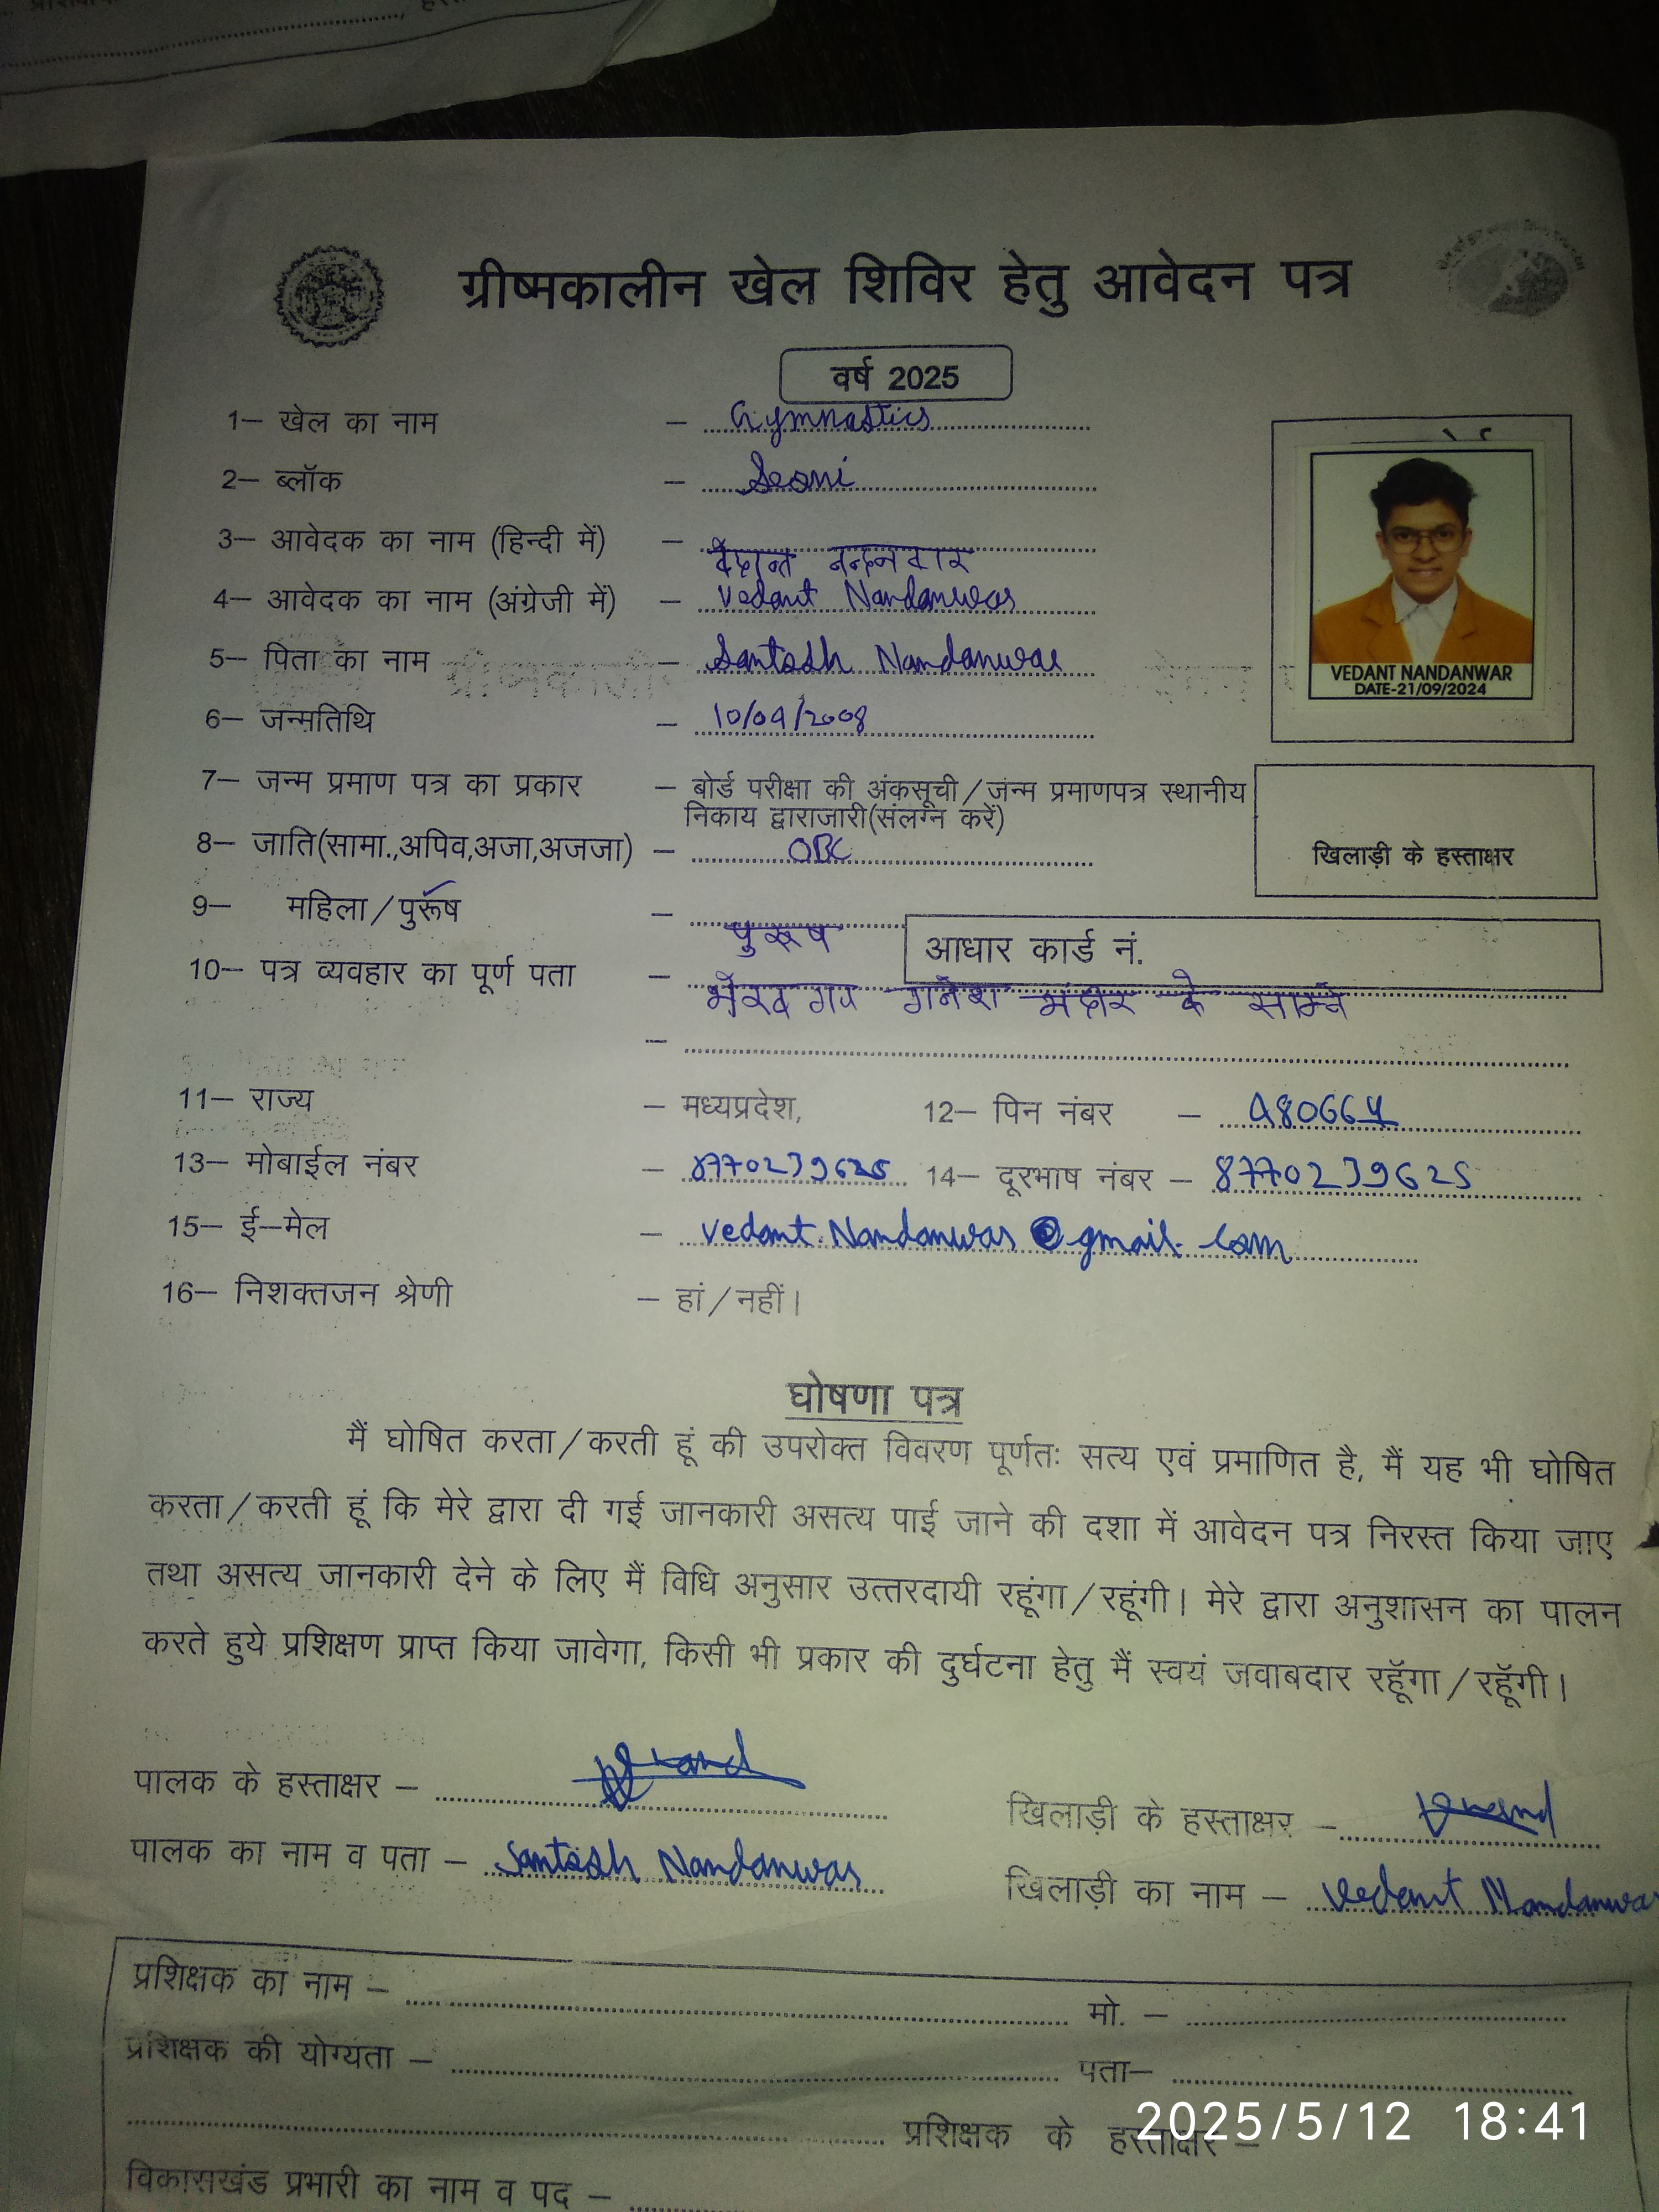 ग्रीष्मकालीन खेल शिविर हेतु आवेदन पत्र
वर्ष 2025
1– खेल का नाम – Gymnastics
2– ब्लॉक – Seoni
3– आवेदक का नाम (हिन्दी में) – वेदान्त नन्दनवार
4– आवेदक का नाम (अंग्रेजी में) – Vedant Nandanwar
5– पिता का नाम – Santosh Nandanwar
VEDANT NANDANWAR
DATE-21/09/2024
6– जन्मतिथि – 10/09/2008
7– जन्म प्रमाण पत्र का प्रकार – बोर्ड परीक्षा की अंकसूची/जन्म प्रमाणपत्र स्थानीय
निकाय द्वाराजारी(संलग्न करें)
8– जाति(सामा.,अपिव,अजा,अजजा) – OBC
खिलाड़ी के हस्ताक्षर
9– महिला/पुरूष – पुरूष
आधार कार्ड नं.
10– पत्र व्यवहार का पूर्ण पता – गनेश मंदीर के साम्ने
–
11– राज्य – मध्यप्रदेश, 12– पिन नंबर – 480664
13– मोबाईल नंबर – 8770239625 14– दूरभाष नंबर – 8770239625
15– ई–मेल – vedant.Nandanwar@gmail.com
16– निशक्तजन श्रेणी – हां/नहीं।
घोषणा पत्र
मैं घोषित करता/करती हूं की उपरोक्त विवरण पूर्णतः सत्य एवं प्रमाणित है, मैं यह भी घोषित
करता/करती हूं कि मेरे द्वारा दी गई जानकारी असत्य पाई जाने की दशा में आवेदन पत्र निरस्त किया जाए
तथा असत्य जानकारी देने के लिए मैं विधि अनुसार उत्तरदायी रहूंगा/रहूंगी। मेरे द्वारा अनुशासन का पालन
करते हुये प्रशिक्षण प्राप्त किया जावेगा, किसी भी प्रकार की दुर्घटना हेतु मैं स्वयं जवाबदार रहूॅगा/रहूॅगी।
पालक के हस्ताक्षर – खिलाड़ी के हस्ताक्षर –
पालक का नाम व पता – Santosh Nandanwar खिलाड़ी का नाम – Vedant Nandanwar
प्रशिक्षक का नाम – मो. –
प्रशिक्षक की योग्यता – पता–
प्रशिक्षक के हस्ताक्षर –
2025/5/12 18:41
विकासखंड प्रभारी का नाम व पद –